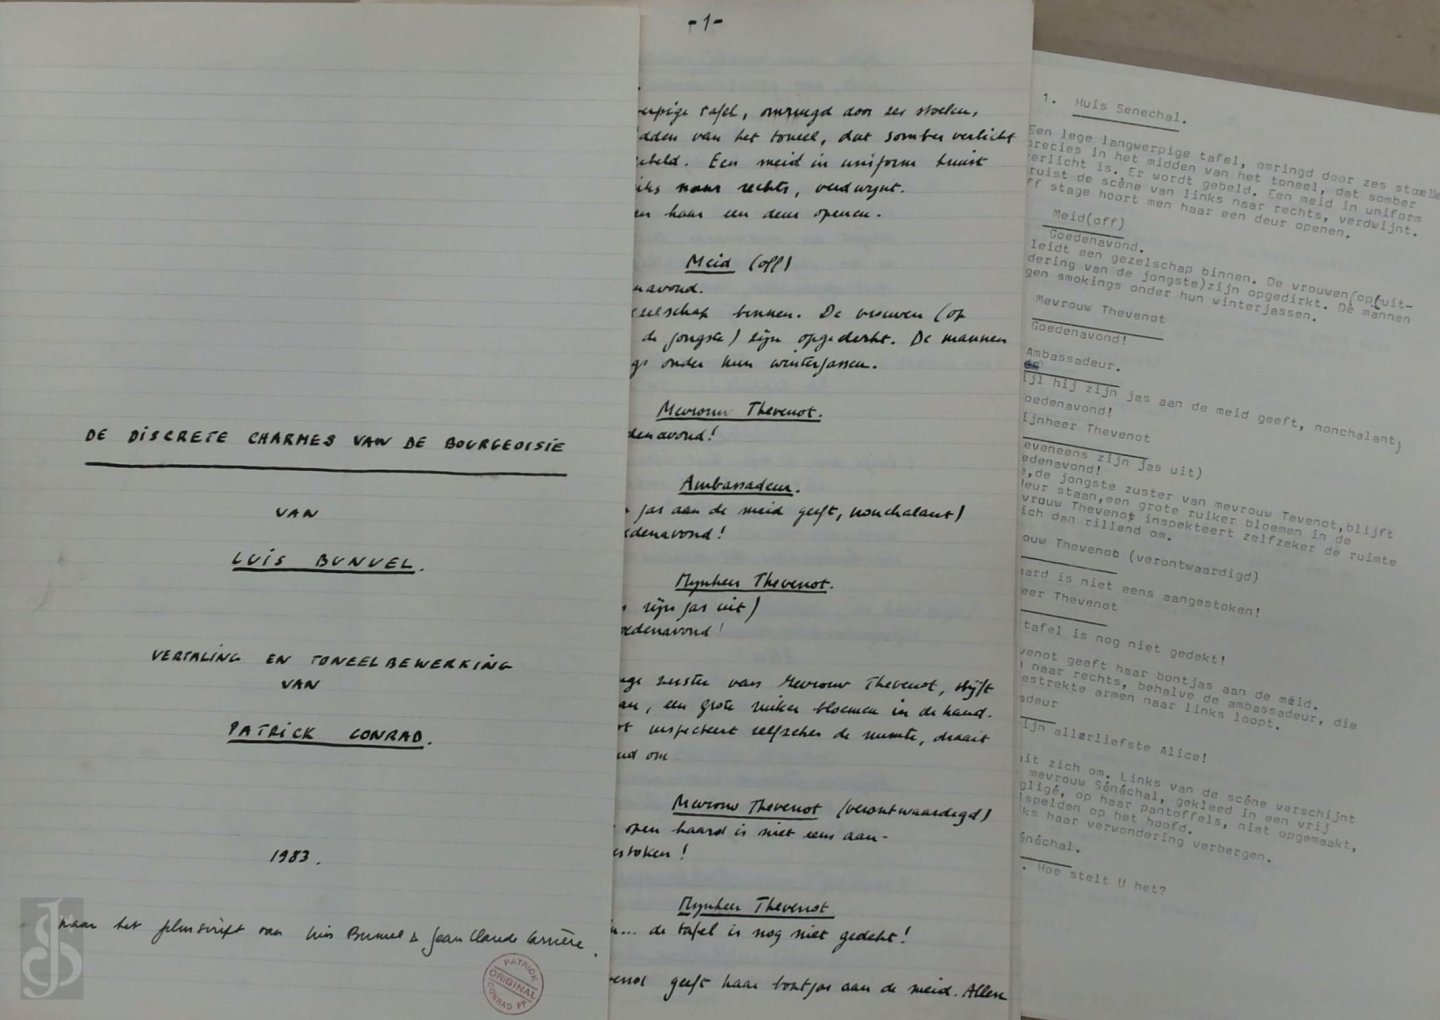 DE DISCRETE CHARMES VAN DE BOURGEOISIE
VAN
LUIS BUNUEL.
VERTALING EN TONEELBEWERKING
VAN
PATRICK CONRAD.
1983.
naar het filmscript van Luis Bunuel & Jean Claude Carrière.
PATRICK
ORIGINAL
CONRAD
-1-
erpige tafel, omringd door zes stoelen,
dden van het toneel, dat somber verlicht
ebeld. Een meid in uniform kruist
ks naar rechts, verdwijnt.
en haar een deur openen.
Meid (off)
navond.
ezelschap binnen. De vrouwen (op
de jongste) zijn opgedirkt. De mannen
gs onder hun winterjassen.
Mevrouw Thevenot.
denavond!
Ambassadeur.
jas aan de meid geeft, nonchalant)
edenavond!
Mijnheer Thevenot.
zijn jas uit)
oedenavond!
nge zuster van Mevrouw Thevenot, blijft
an, een grote ruiker bloemen in de hand.
ot inspecteert zelfzeker de ruimte, draait
nd om
Mevrouw Thevenot (verontwaardigd)
open haard is niet eens aan-
estoken!
Mijnheer Thevenot
... de tafel is nog niet gedekt!
venot geeft haar bontjas aan de meid. Allen
1. Huis Senechal.
Een lege langwerpige tafel, omringd door zes stoelen
precies in het midden van het toneel, dat somber
verlicht is. Er wordt gebeld. Een meid in uniform
ruist de scène van links naar rechts, verdwijnt.
ff stage hoort men haar een deur openen.
Meid(off)
Goedenavond.
leidt een gezelschap binnen. De vrouwen(op(uit-
dering van de jongste)zijn opgedirkt. De mannen
gen smokings onder hun winterjassen.
Mevrouw Thevenot
Goedenavond!
Ambassadeur.
ijl hij zijn jas aan de meid geeft, nonchalant)
oedenavond!
ijnheer Thevenot
eveneens zijn jas uit)
edenavond!
,de jongste zuster van mevrouw Tevenot,blijft
deur staan,een grote ruiker bloemen in de
vrouw Thevenot inspekteert zelfzeker de ruimte
ich dan rillend om.
ouw Thevenot (verontwaardigd)
aard is niet eens aangestoken!
eer Thevenot
tafel is nog niet gedekt!
venot geeft haar bontjas aan de meid.
naar rechts, behalve de ambassadeur, die
estrekte armen naar links loopt.
adeur
ijn allerliefste Alice!
it zich om. Links van de scène verschijnt
mevrouw Sénéchal, gekleed in een vrij
gligé, op haar pantoffels, niet opgemaakt,
spelden op het hoofd.
ks haar verwondering verbergen.
énéchal.
. Hoe stelt U het?